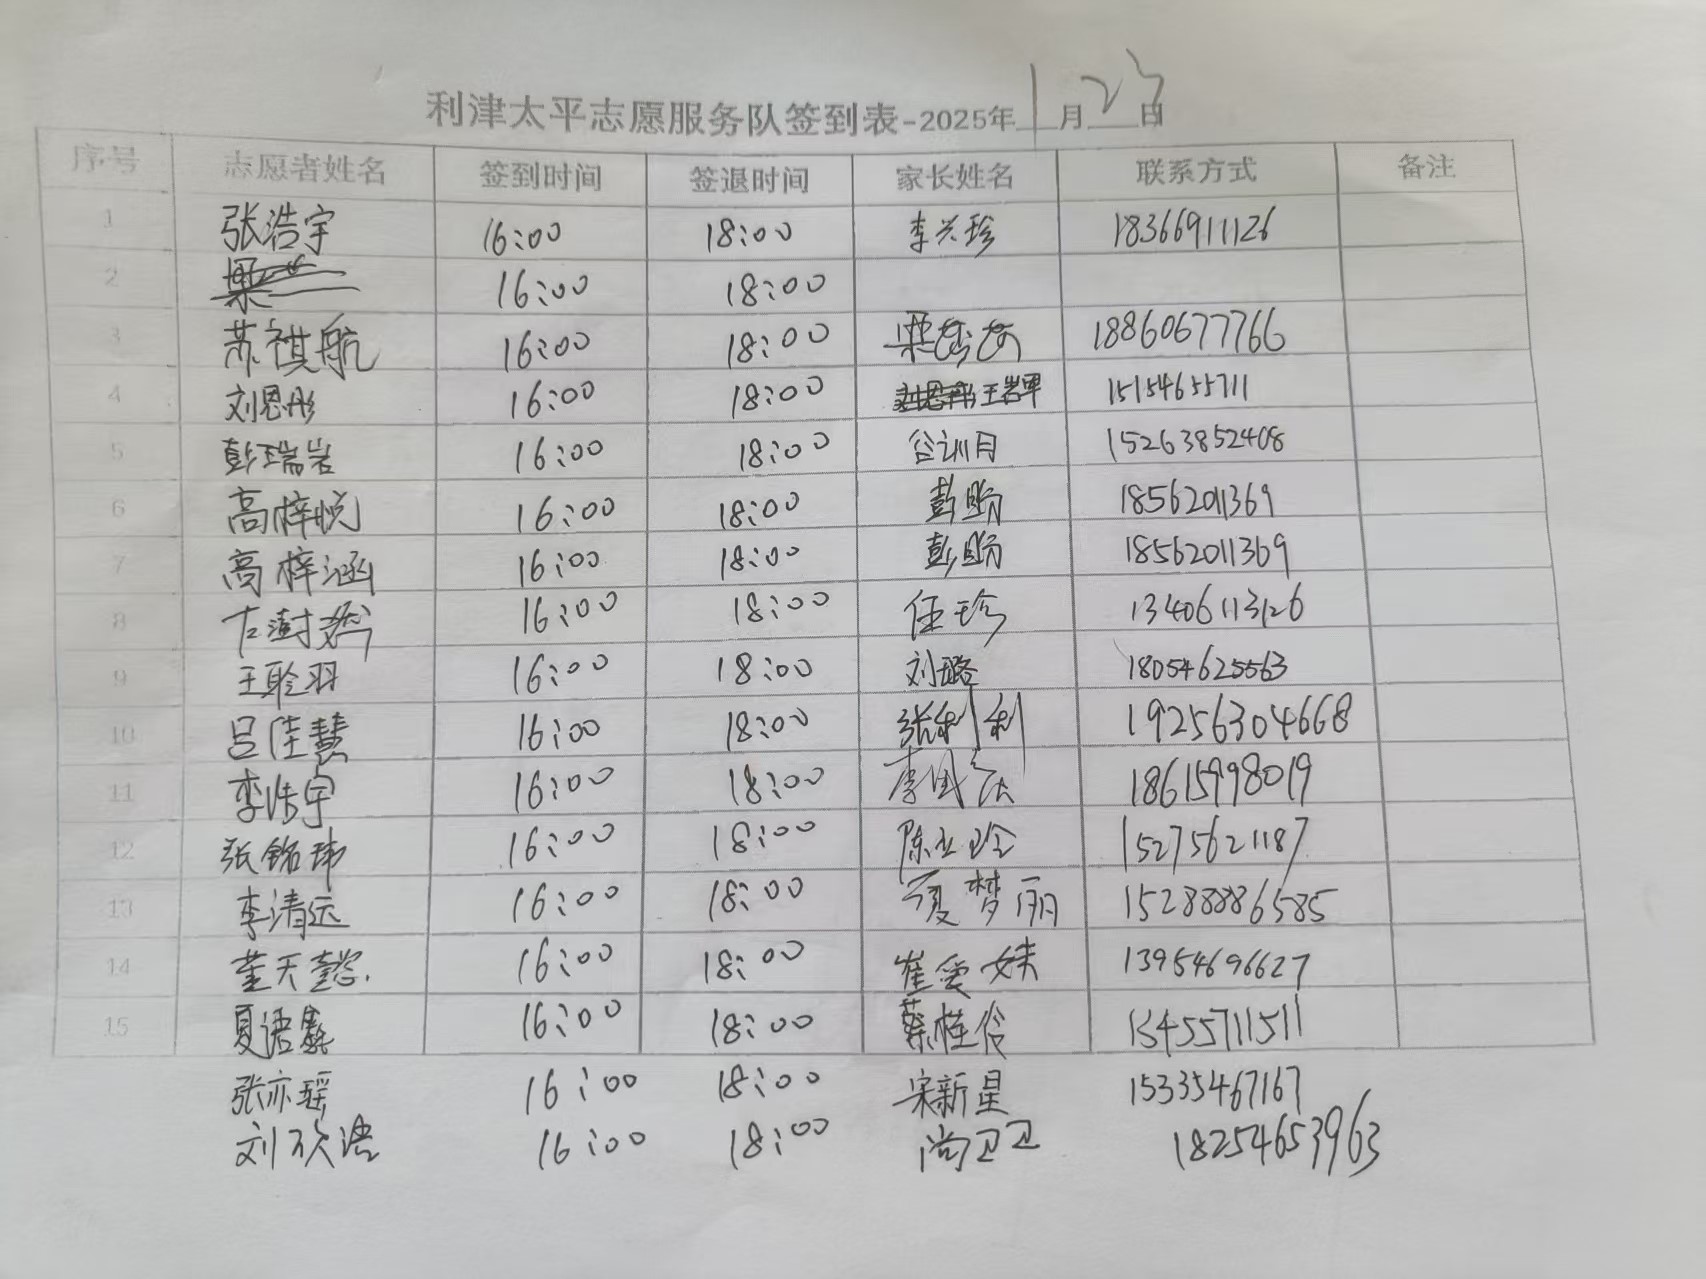 利津太平志愿服务队签到表-2025年1月23日
序号 志愿者姓名 签到时间 签退时间 家长姓名 联系方式 备注
1 张浩宇 16:00 18:00 李兴珍 18366911126
2 16:00 18:00
3 苏祺航 16:00 18:00 18860677766
4 刘恩彤 16:00 18:00 王岩军 15154655711
5 彭瑞岩 16:00 18:00 谷训月 15263852408
6 高梓悦 16:00 18:00 彭盼 18562011369
7 高梓涵 16:00 18:00 彭盼 18562011369
8 16:00 18:00 任珍 13406113126
9 王聆羽 16:00 18:00 刘璐 18054625563
10 吕佳慧 16:00 18:00 张利利 19256304668
11 李浩宇 16:00 18:00 18615998019
12 张铭玮 16:00 18:00 陈立玲 15275621187
13 李清远 16:00 18:00 夏梦丽 15288886585
14 董天懿 16:00 18:00 崔爱妹 13954696627
15 夏语 16:00 18:00 蔡桂伶 13455711511
张亦瑶 16:00 18:00 宋新星 15335467167
刘欣语 16:00 18:00 尚卫卫 18254653963